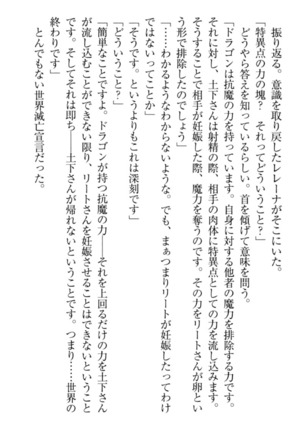 振り返る。意識を取り戻したレレーナがそこにいた。
「特異点の力の塊？　それってどういうこと？」
どうやら答えを知っているらしい。首を傾げて意味を問う。
「ドラゴンは抗魔の力を持っています。自身に対する他者の魔力を排除する力です。
それに対し、土下さんは射精の際、相手の肉体に特異点としての力を流し込みます。
そうすることで相手が妊娠した際、魔力を奪うのです。その力をリートさんが卵とい
う形で排除したのでしょう」
「……わかるようなわからないような。でも、まぁつまりリートが妊娠したってわけ
ではないってことか」
「そうです。というよりもこれは深刻です」
「どういうこと？」
「簡単なことですよ。ドラゴンが持つ抗魔の力――それを上回るだけの力を土下さん
が流し込むことができない限り、リートさんを妊娠させることはできないということ
です。そしてそれは即ち――土下さんが帰れないということです。つまり……世界の
終わりです」
とんでもない世界滅亡宣言だった。